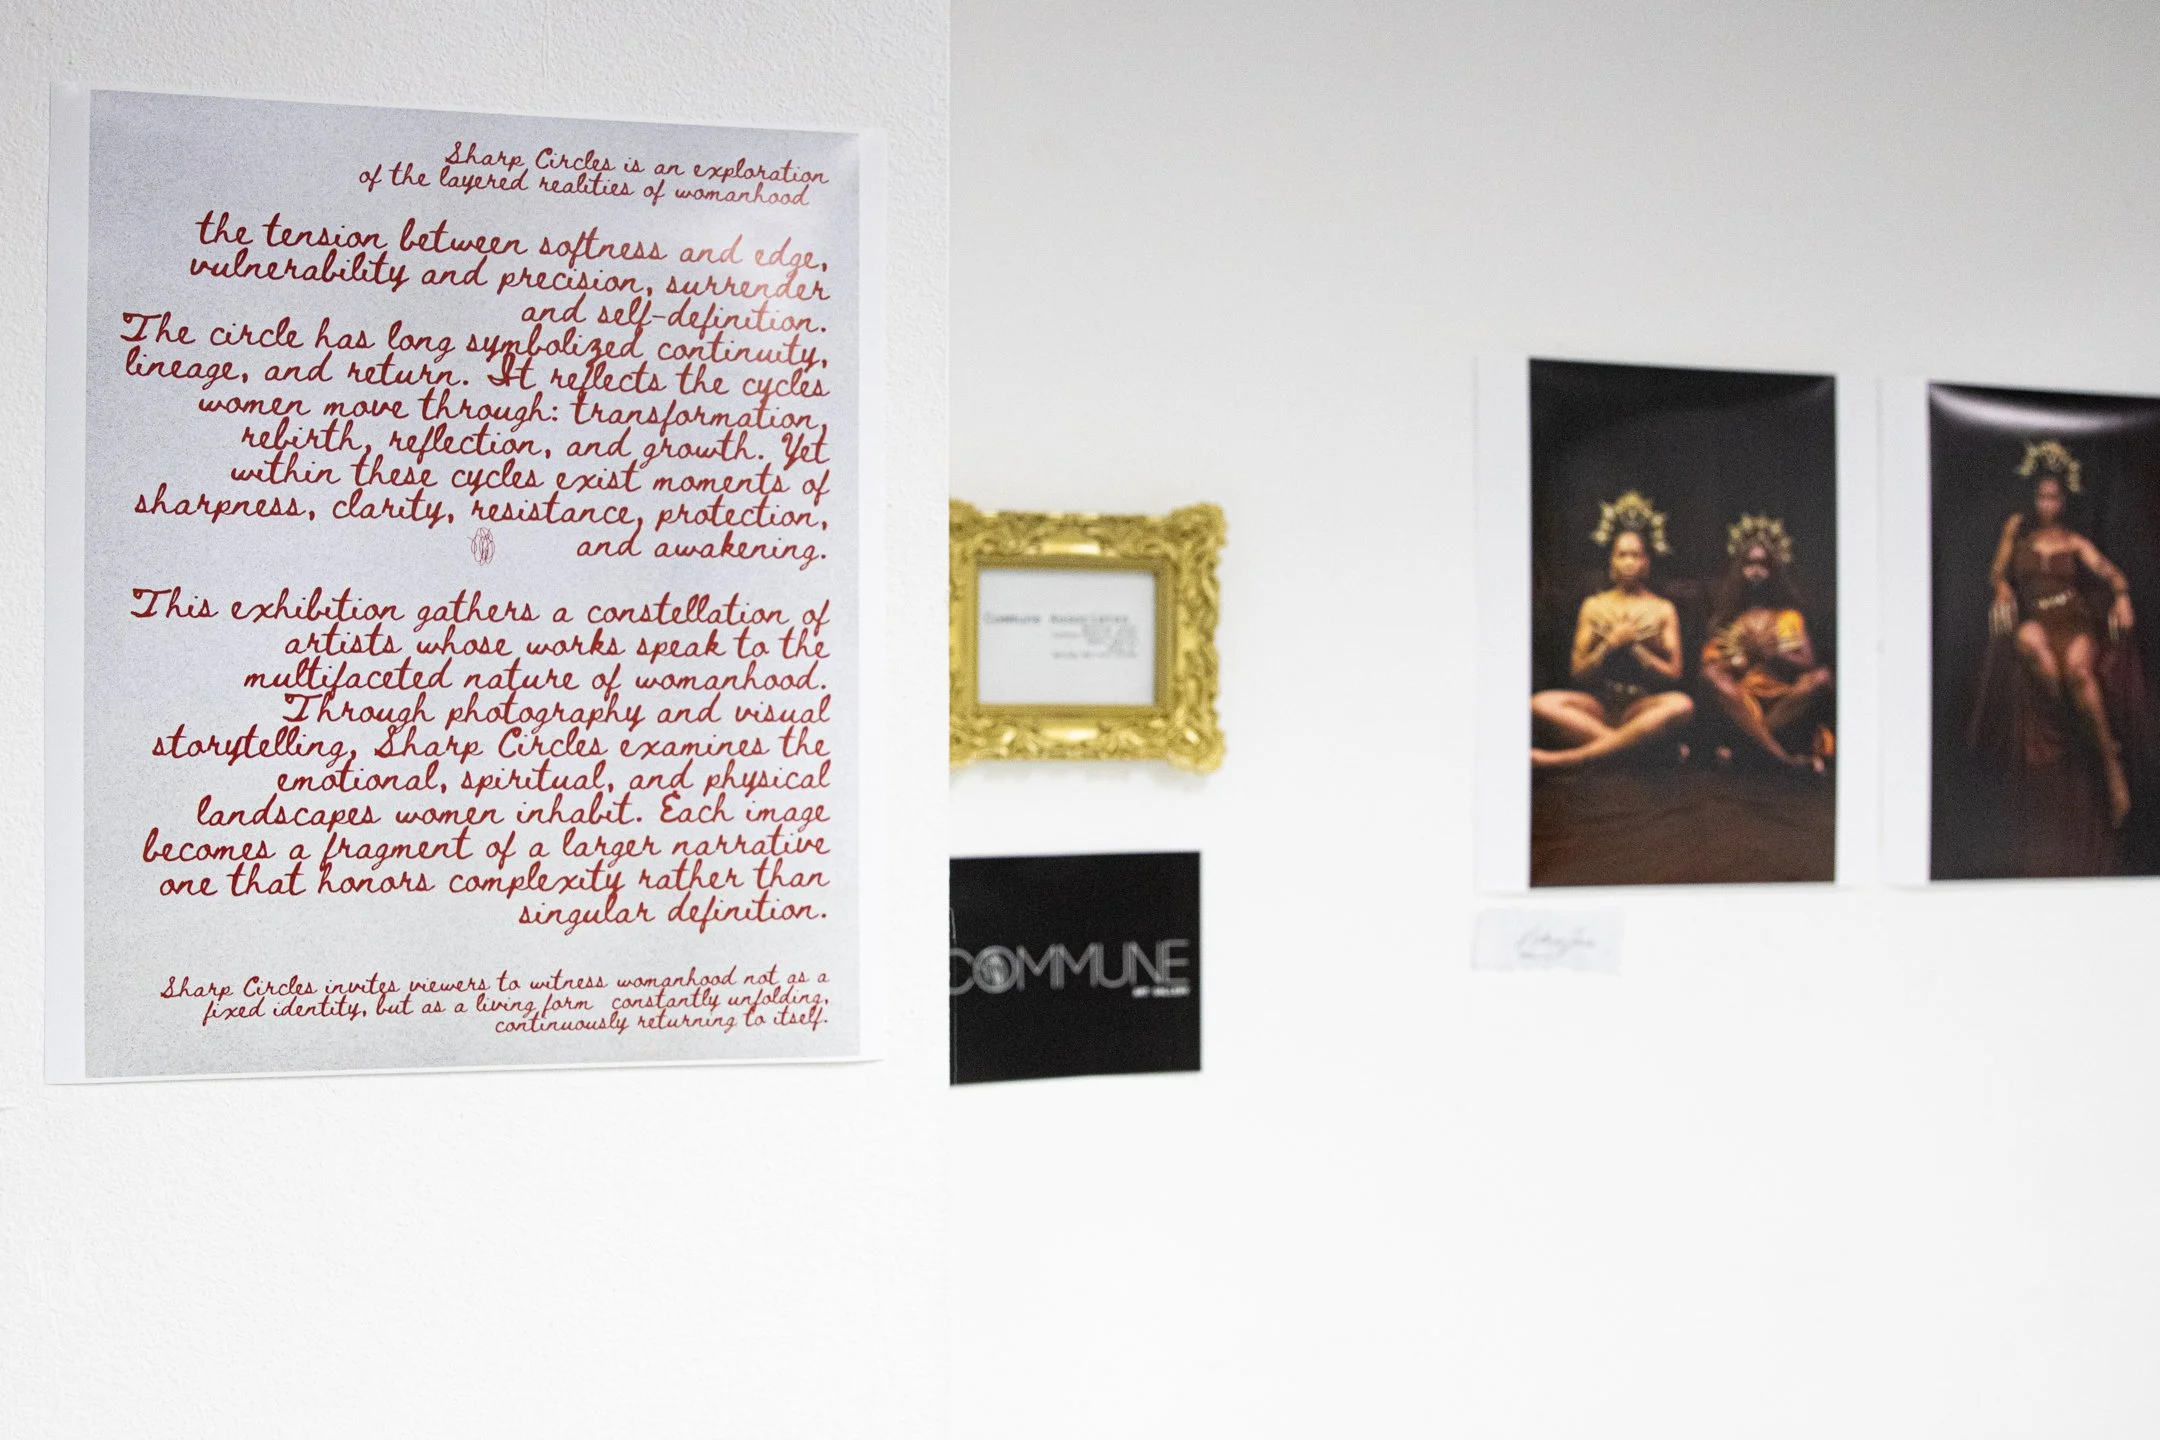 Sharp Circles is an exploration
of the layered realities of womanhood
the tension between softness and edge,
vulnerability and precision, surrender
and self-definition.
The circle has long symbolized continuity,
lineage, and return. It reflects the cycles
women move through: transformation,
rebirth, reflection, and growth. Yet
within these cycles exist moments of
sharpness, clarity, resistance, protection,
and awakening.
This exhibition gathers a constellation of
artists whose works speak to the
multifaceted nature of womanhood.
Through photography and visual
storytelling, Sharp Circles examines the
emotional, spiritual, and physical
landscapes women inhabit. Each image
becomes a fragment of a larger narrative
one that honors complexity rather than
singular definition.
Sharp Circles invites viewers to witness womanhood not as a
fixed identity, but as a living form constantly unfolding,
continuously returning to itself.
Commune Associates
COMMUNE
ART GALLERY